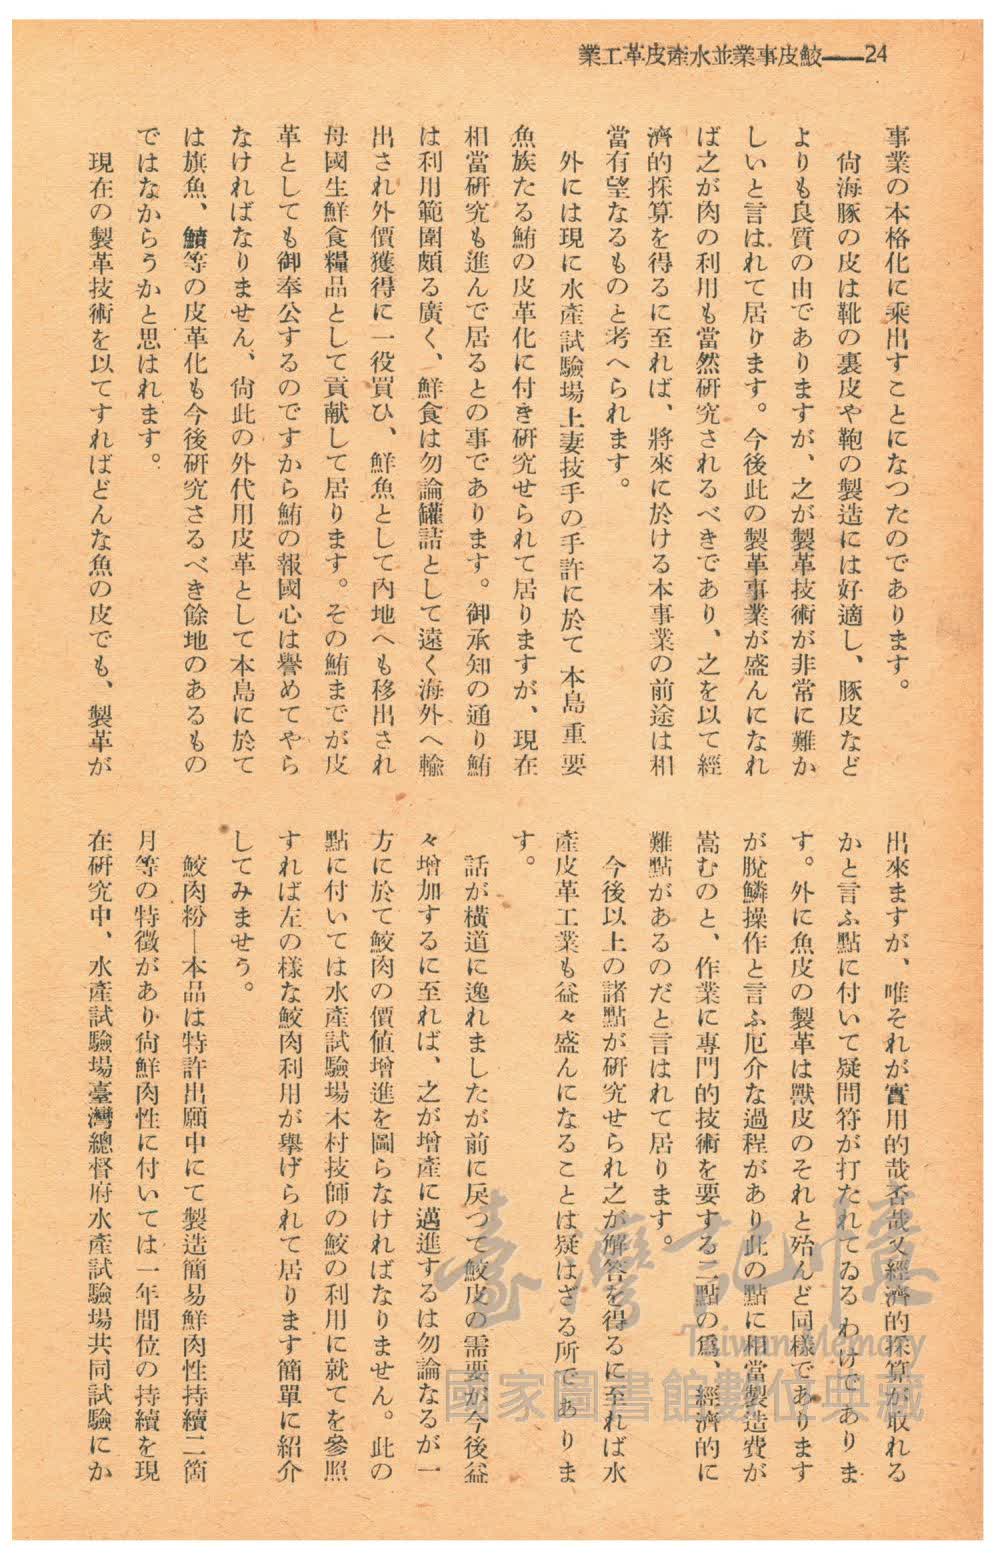 業工革皮產水並業事皮鮫——24
事業の本格化に乘出すことになつたのであります。
尙海豚の皮は靴の裏皮や鞄の製造には好適し、豚皮など
よりも良質の由でありますが、之が製革技術が非常に難か
しいと言はれて居ります。今後此の製革事業が盛んになれ
ば之が肉の利用も當然硏究されるべきであり、之を以て經
濟的採算を得るに至れば、將來に於ける本事業の前途は相
當有望なるものと考へられます。
外には現に水產試驗場上妻技手の手許に於て本島重要
魚族たる鮪の皮革化に付き硏究せられて居りますが、現在
相當硏究も進んで居るとの事であります。御承知の通り鮪
は利用範圍頗る廣く、鮮食は勿論罐詰として遠く海外へ輸
出され外價獲得に一役買ひ、鮮魚として內地へも移出され
母國生鮮食糧品として貢献して居ります。その鮪までが皮
革としても御奉公するのですから鮪の報國心は譽めてやら
なければなりません、尙此の外代用皮革として本島に於て
は旗魚、鱝等の皮革化も今後硏究さるべき餘地のあるもの
ではなからうかと思はれます。
現在の製革技術を以てすればどんな魚の皮でも、製革が
出來ますが、唯それが實用的哉否哉又經濟的採算が取れる
かと言ふ點に付いて疑問符が打たれてゐるわけでありま
す。外に魚皮の製革は獸皮のそれと殆んど同樣であります
が脫鱗操作と言ふ厄介な過程があり此の點に相當製造費が
嵩むのと、作業に專門的技術を要する二點の爲、經濟的に
難點があるのだと言はれて居ります。
今後以上の諸點が硏究せられ之が解答を得るに至れば水
產皮革工業も益々盛んになることは疑はざる所でありま
す。
話が橫道に逸れましたが前に戾つて鮫皮の需要が今後益
々增加するに至れば、之が增產に邁進するは勿論なるが一
方に於て鮫肉の價値增進を圖らなければなりません。此の
點に付いては水產試驗場木村技師の鮫の利用に就てを參照
すれば左の樣な鮫肉利用が擧げられて居ります簡單に紹介
してみませう。
鮫肉粉—本品は特許出願中にて製造簡易鮮肉性持續二箇
月等の特徵があり尙鮮肉性に付いては一年間位の持續を現
在硏究中、水產試驗場臺灣總督府水產試驗場共同試驗にか
臺灣記憶
Taiwan Memory
國家圖書館數位典藏